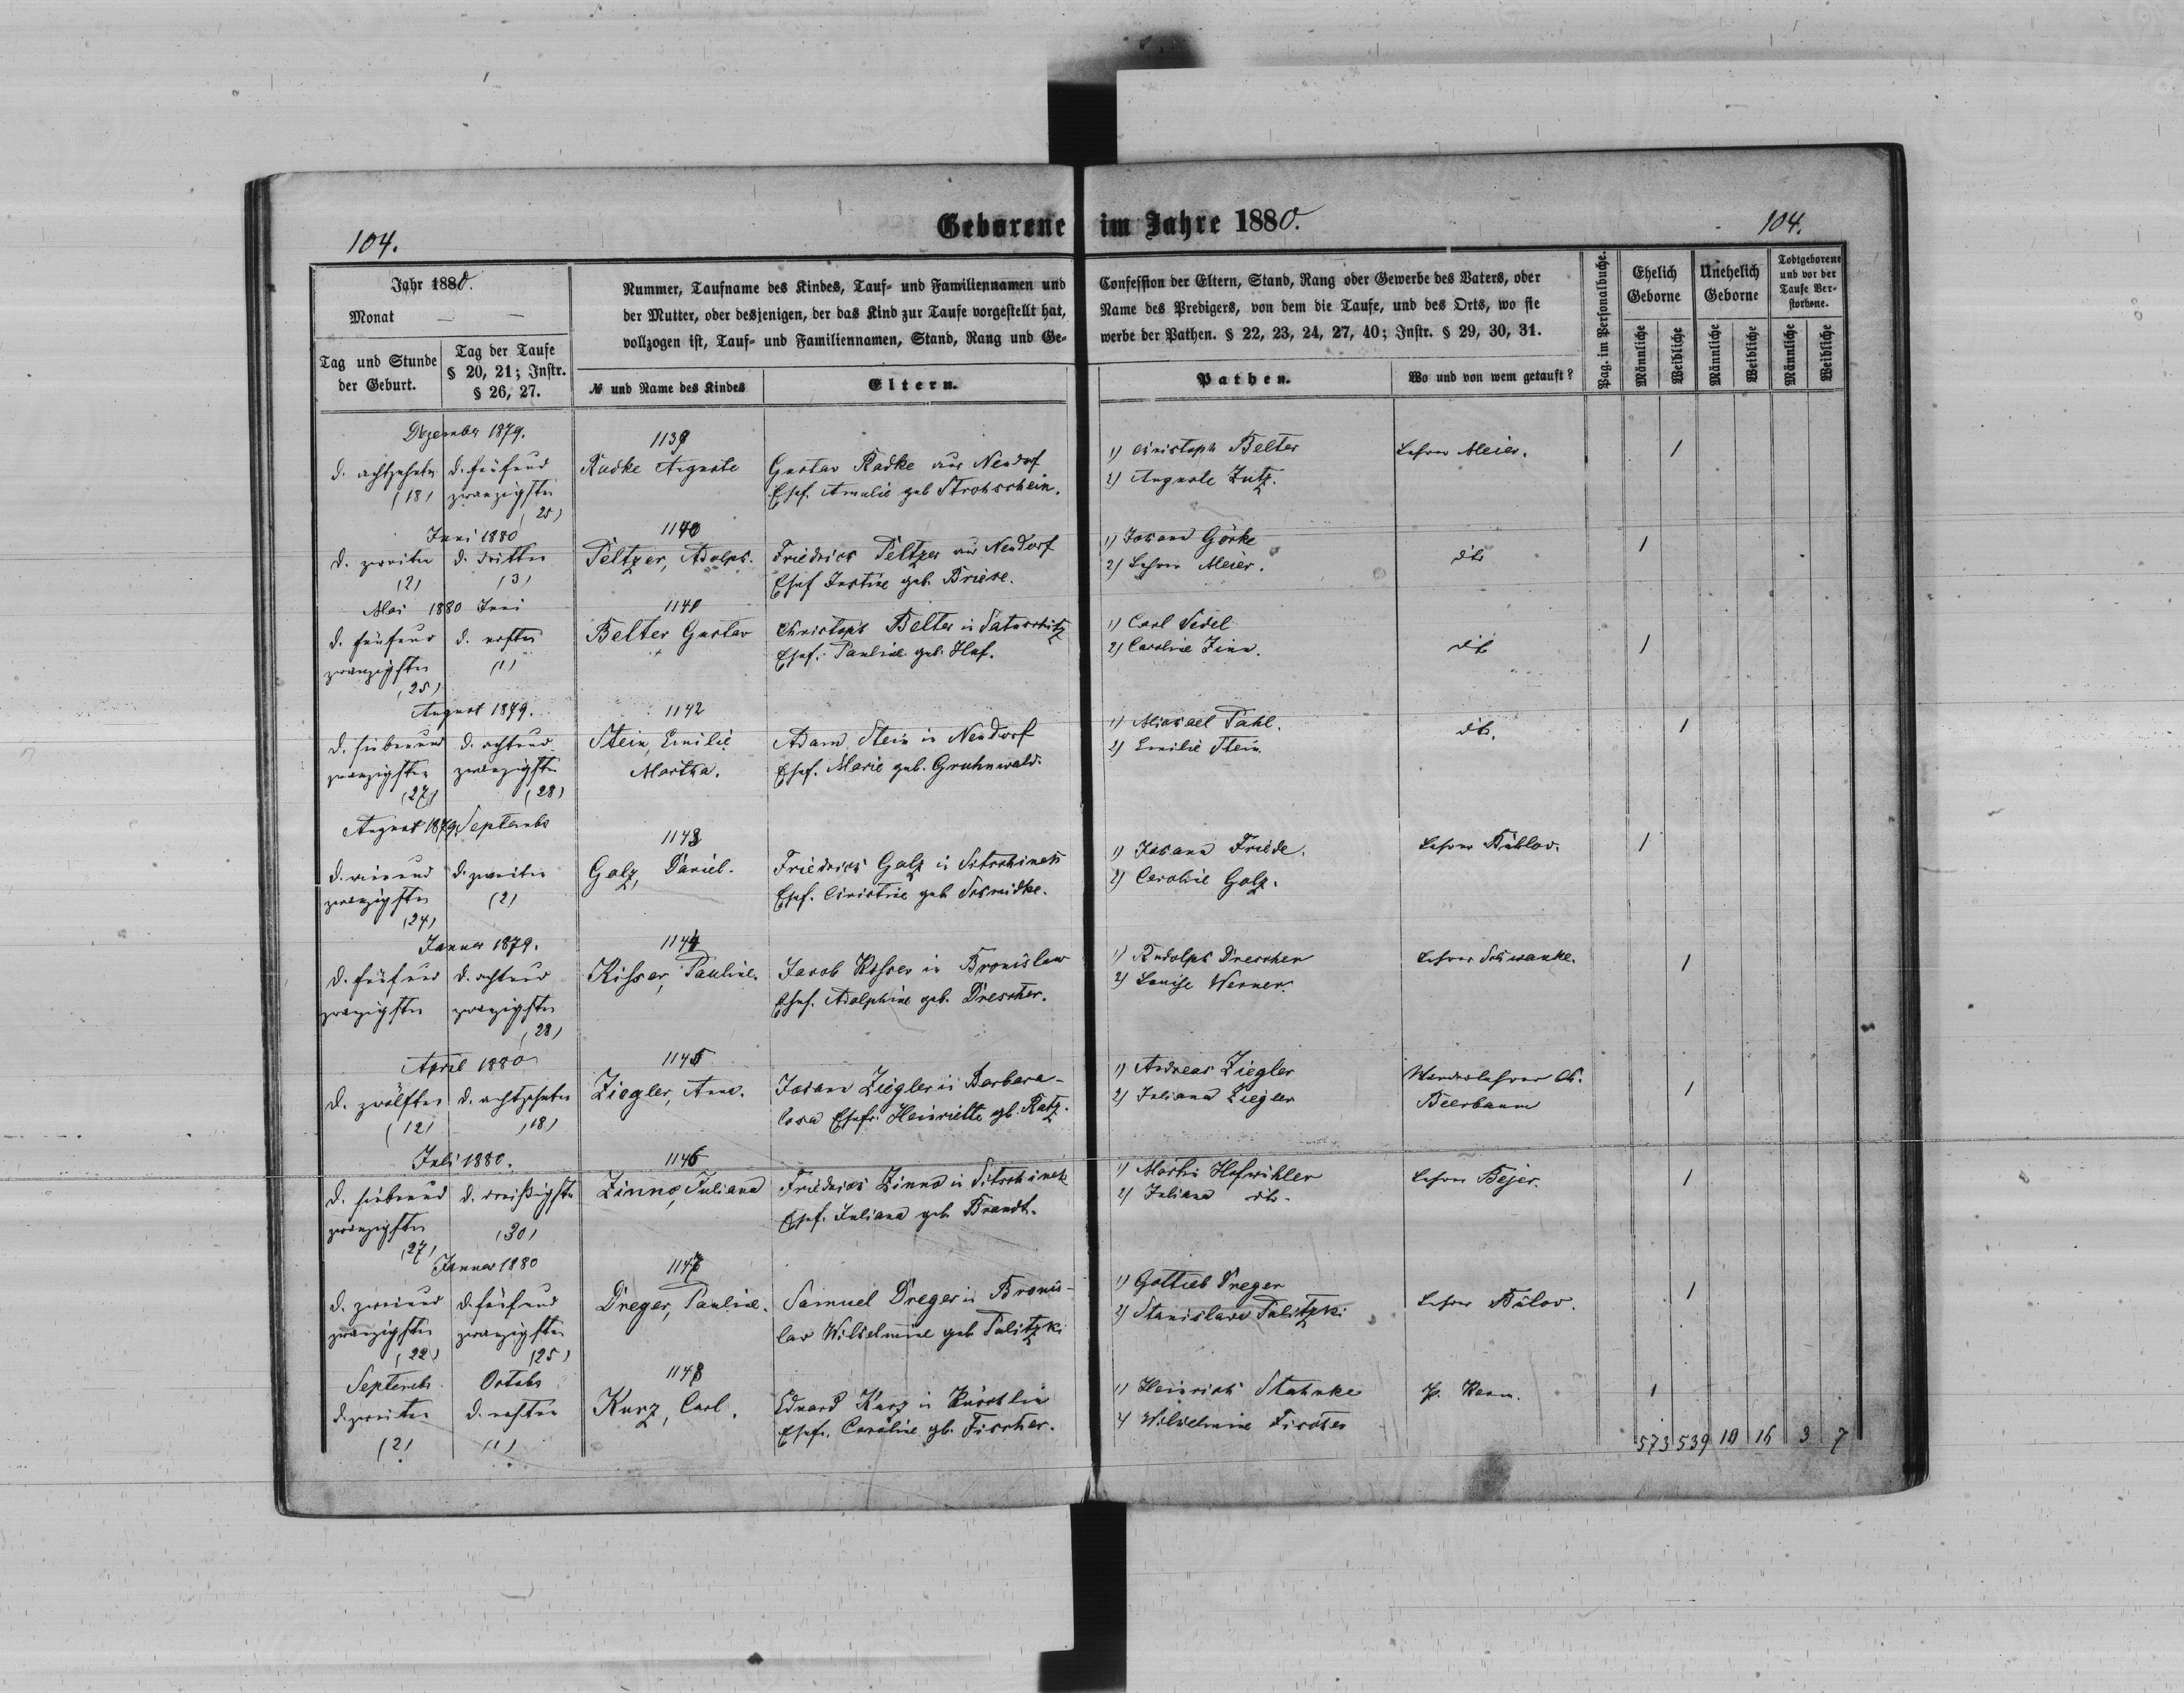 Geborene im Jahre 1880.
104.
104.
Jahr 1880.
Monat — —
Tag und Stunde der Geburt.
Tag der Taufe § 20, 21; Instr. § 26, 27.
Nummer, Taufname des Kindes, Tauf- und Familiennamen und
der Mutter, oder desjenigen, der das Kind zur Taufe vorgestellt hat,
vollzogen ist, Tauf- und Familiennamen, Stand, Rang und Ge-
№ und Name des Kindes
Eltern.
Confession der Eltern, Stand, Rang oder Gewerbe des Vaters, oder
Name des Predigers, von dem die Taufe, und des Orts, wo sie
werbe der Pathen. § 22, 23, 24, 27, 40; Instr. § 29, 30, 31.
Pathen.
Wo und von wem getauft?
Pag. im Personalbuche.
Ehelich Geborne
Unehelich Geborne
Todtgeborene und vor der Taufe Verstorbene.
Männliche
Weibliche
Männliche
Weibliche
Männliche
Weibliche
Dezember 1879. 1139
d. achtzehnten d. fünfund Radke Auguste Gustav Radke aus Neudorf 1) Christoph Belter Lehrer Meier. 1
(18) zwanzigsten Ehef. Amalie geb Strohschein. 2) Auguste Lutz.
(25)
Juni 1880 1140
d. zweiten d. dritten Peltzer, Adolph. Friedrich Peltzer aus Neudorf 1) Johann Görke dto 1
(2) (3) Ehef Justine geb. Briese. 2) Lehrer Meier.
Mai 1880 Juni 1141
d. fünfund d. ersten Belter Gustav Christoph Belter in 1) Carl Seidel dto 1
zwanzigsten (1) Ehef. Pauline geb. Huf. 2) Caroline Zinn.
(25)
August 1879. 1142
d. siebenund d. achtund Stein, Emilie Adam Stein in Neudorf 1) Michael Pahl. dto. 1
zwanzigsten zwanzigsten Martha. Ehef. Marie geb. Gruhnwald. 2) Emilie Stein.
(27) (28)
August 1879 September 1143
d. vierund d. zweiten Golz, Daniel. Friedrich Golz in Sitschinek 1) Johann Friede. Lehrer Bühlow. 1
zwanzigsten (2) Ehef. Christine geb Schmidke. 2) Caroline Golz.
(24)
Januar 1879. 1144
d. fünfund d. achtund Kisser, Pauline. Jacob Kisser in Bronislaw 1) Rudolph Drescher Lehrer Schwanke. 1
zwanzigsten zwanzigsten Ehef. Adolphine geb. Drescher. 2) Louise Werner.
(28)
April 1880 1145
d. zwölften d. achtzehnten Ziegler, Anna. Johann Ziegler in Barbara- 1) Andreas Ziegler Wanderlehrer Ch. 1
(12) (18) Ehefr. Heinriette gb. Ratz. 2) Juliana Ziegler Beerbaum
Juli 1880. 1146
d. siebenund d. dreißigsten Zinno, Juliana Friedrich Zinno in Sitschinek 1) Martin Hofmihler Lehrer Bejer. 1
zwanzigsten (30) Ehef. Juliana geb. Brandt. 2) Juliana dto.
(27)
Januar 1880 1147
d. zweiund d. fünfund Dreger, Pauline. Samuel Dreger in Bronis- 1) Gottlieb Dreger Lehrer Bülow. 1
zwanzigsten zwanzigsten law Wilhelmine geb Palitzki 2) Stanislaw Palitzki
(22) (25)
September October 1148
d. zweiten d. ersten Kurz, Carl. Eduard Kurz in 1) Heinrich Stahnke 1
(2) (1) Ehefr. Caroline gb. Fischer. 2) Wilhelmine Fischer
573 539 10 16 3 7